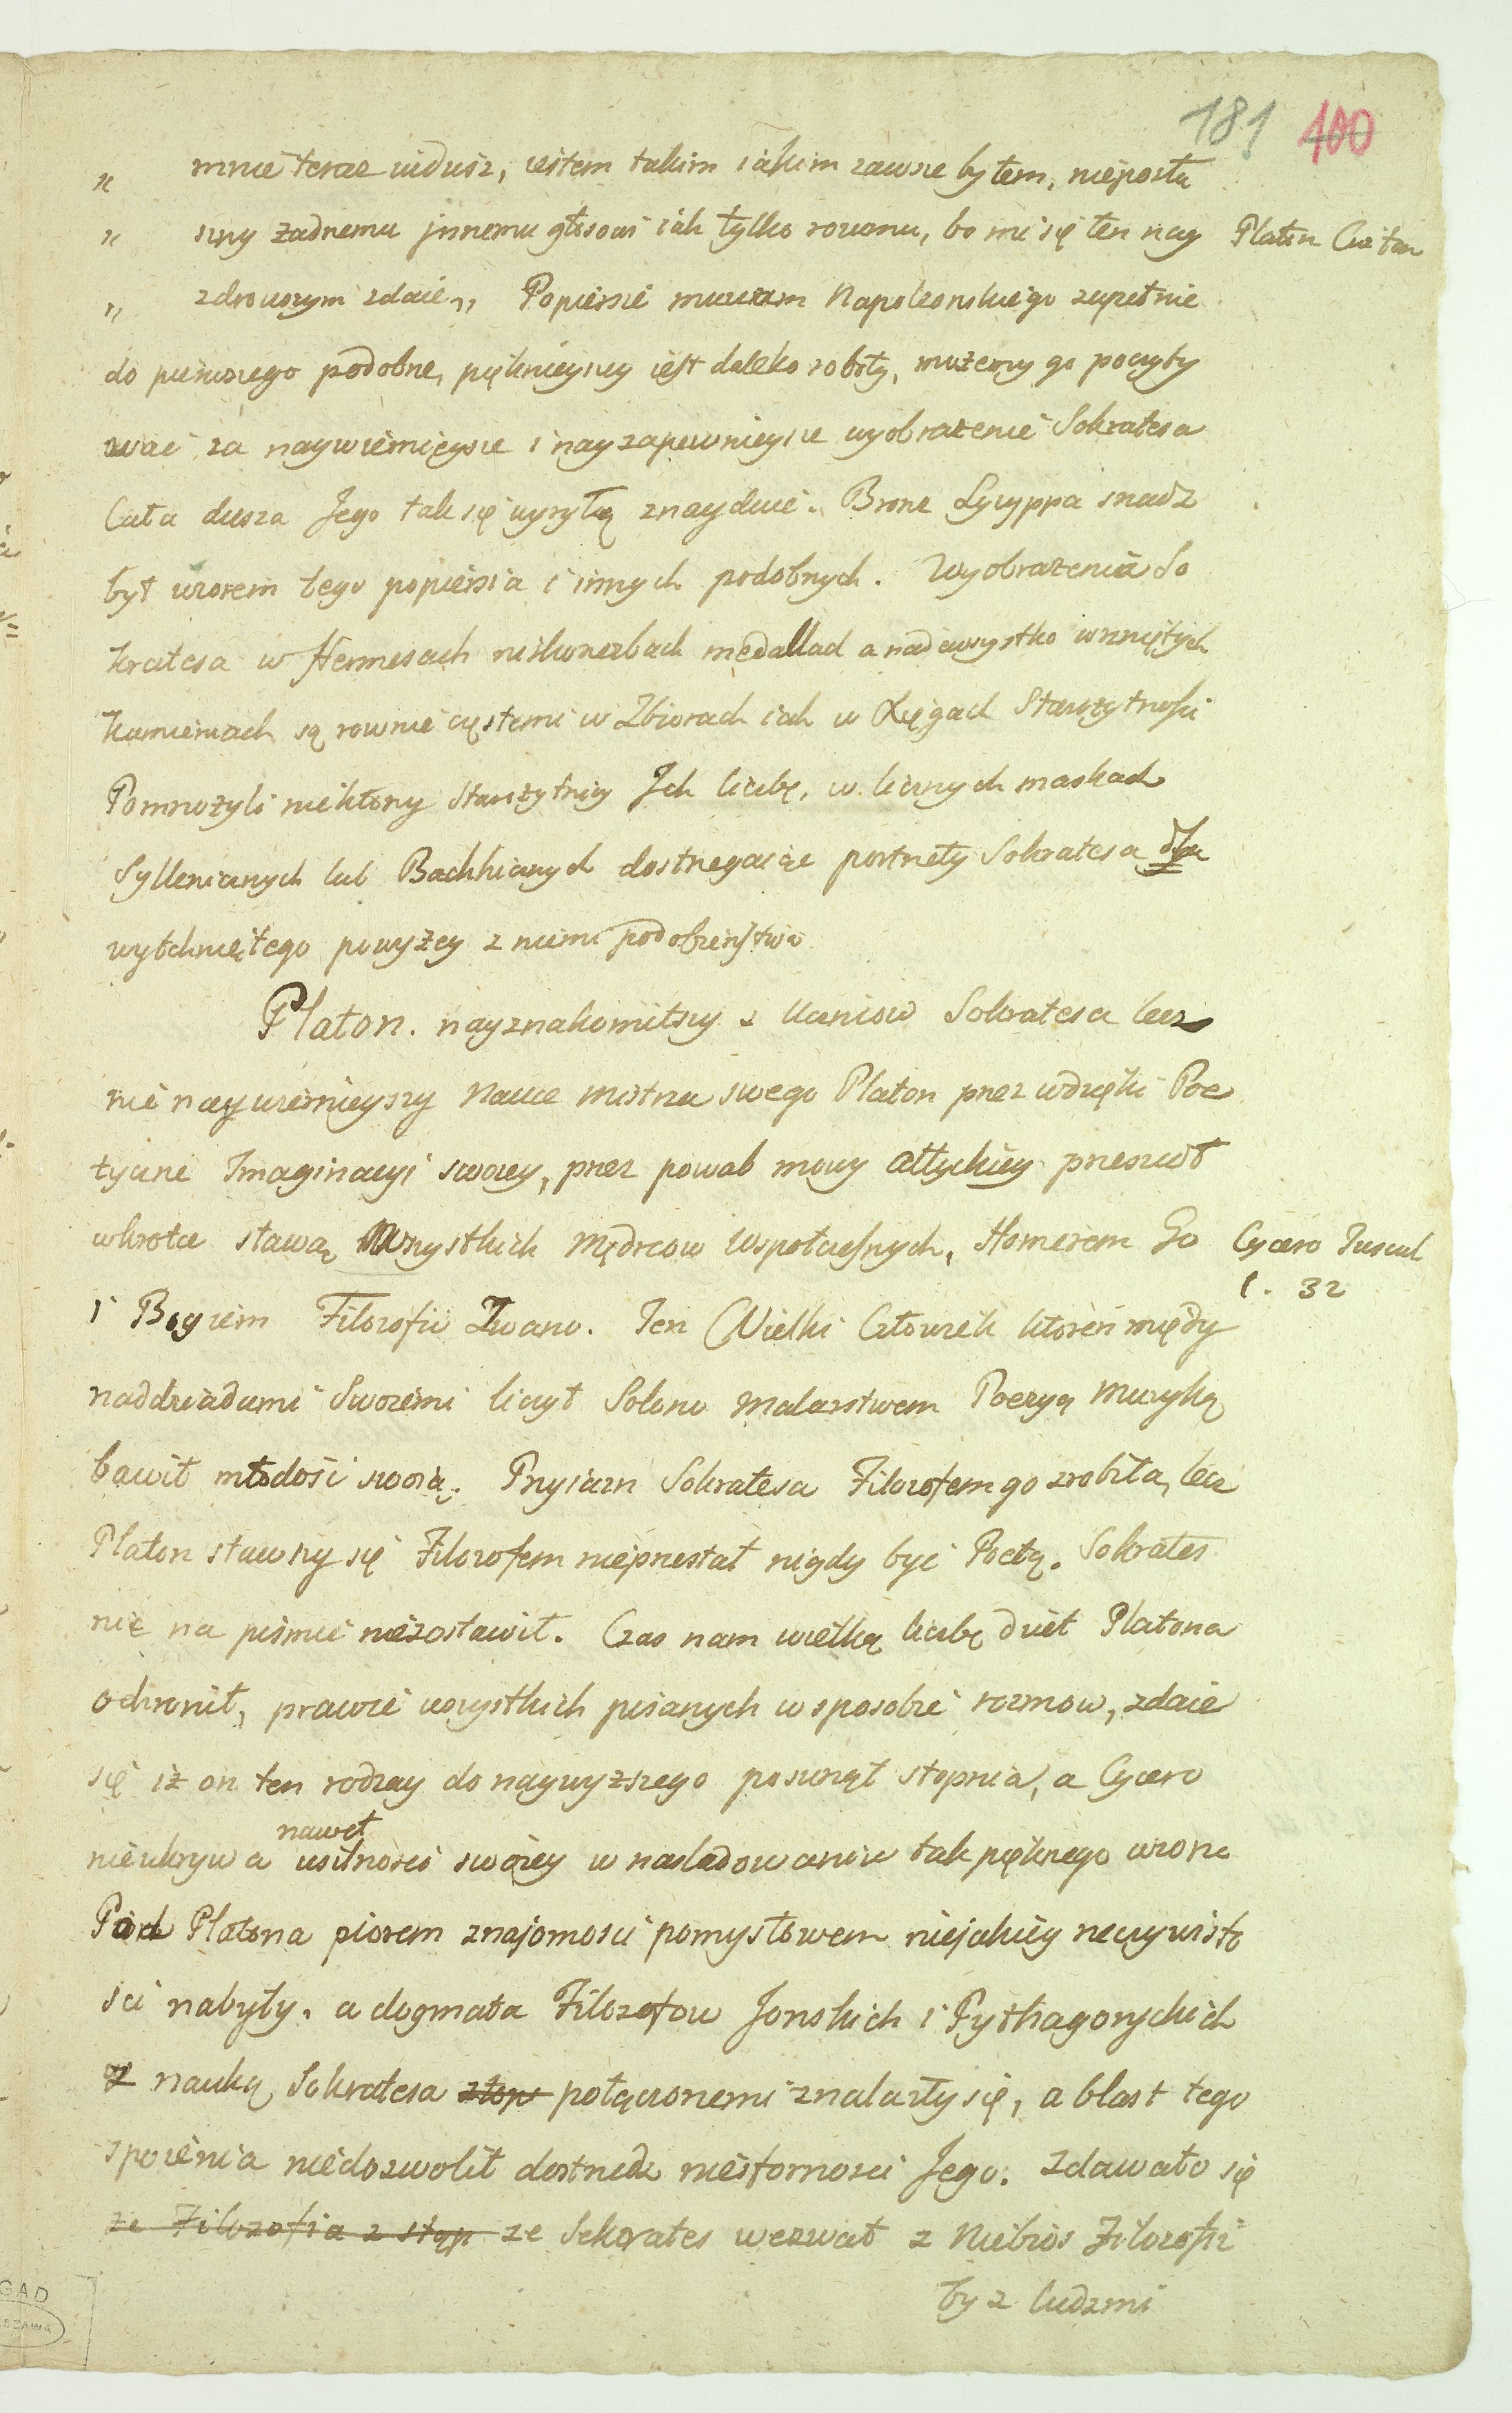 181 100
„ mnie teraz widzisz, iestem takim iakim zawsze byłem, nieposłu
„ szny żadnemu jnnemu głosowi iak tylko rozumu, bo mi się ten nay
Platon Criton
„ zdrowszym zdaie „ Popiersie muzeum Napoleonskiego zupełnie
do pierwszego podobne, pięknieyszey iest daleko roboty, możemy go poczyty
wać za naywiernieysze i nayzapewnieysze wyobrażenie Sokratesa
Cała dusza Jego tak się wyrytą znayduie. Bronz Lyzyppa snadz
był wzorem tego popiersia i innych podobnych. Wyobrażenia So
kratesa w Hermesach rzeźbach medallach a nadewszystko wrzniętych
Kamieniach są rownie częstemi w Zbiorach iak w Xięgach Starożytnosci
Pomnożyli niektorzy Starożytnicy Jch liczbę, w licznych maskach
Syllenicznych lub Bachhicznych dostrzegaiąc portrety Sokratesa dla
wytchniętego powyżey z niemi podobieństwa
Platon. nayznakomitszy z Uczniow Sokratesa lecz
nie naywiernieyszy Nauce mistrza swego Platon przez wdzięki Poe
tyczne Jmaginacyi swoiey, przez powab mowy attyckiey przeszedł
wkrotce sławą Wszystkich Mędrcow Wspołczesnych, Homerem Go
Cycero Tuscul
1. 32
i Bogiem Filozofii Zwano. Ten Wielki Człowiek ktoren między
naddziadami Swoiemi liczył Solona Malarstwem Poezyą Muzyką
bawił młodość swoią. Przyiazn Sokratesa Filozofem go zrobiła, lecz
Platon stawszy się Filozofem nieprzestał nigdy być Poetą. Sokrates
nic na pismie niezostawił. Czas nam wielką liczbę dzieł Platona
ochronił, prawie wszystkich pisanych w sposobie rozmow, zdaie
się iż on ten rodzay do naywyższego posunął stopnia, a Cycero
nawet
nieukrywa usilności swoiey w nasladowaniu tak pięknego wzoru
Pod Platona piorem znajomosci pomysłowem niejakiey rzeczywisto
sci nabyły. a dogmata Filozofow Jonskich i Pythagoryckich
z nauką Sokratesa złop połączonemi znalazły się, a blast tego
spoienia niedozwolił dostrzedz niesforności Jego. Zdawało się
że Filozofia z stąp że Sokrates wezwał z Niebios Filozofii
by z ludzmi
GAD
SZAWA